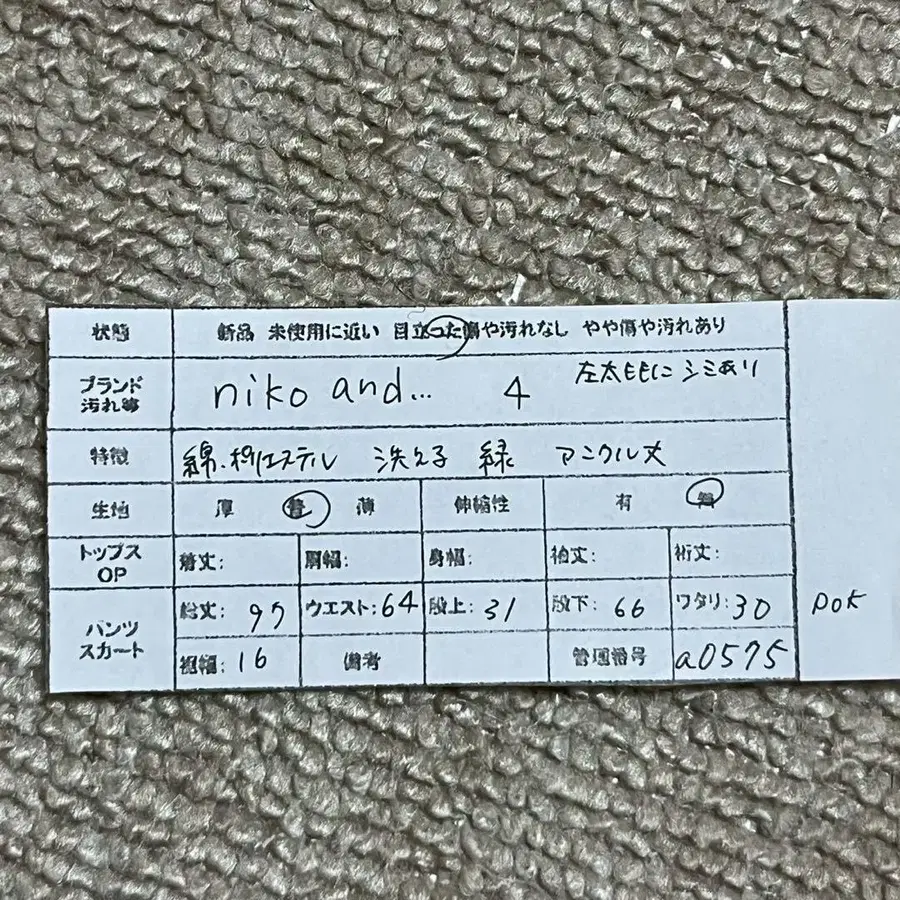 状態 新品 未使用に近い 目立った傷や汚れなし やや傷や汚れあり
ブランド 汚れ等 niko and... 4 左太ももにシミあり
特徴 綿.ポリエステル 洗える 緑 アンクル丈
生地 厚 普 薄 伸縮性 有 無
トップス OP 着丈: 肩幅: 身幅: 袖丈: 裄丈:
パンツ スカート 総丈: 97 ウエスト: 64 股上: 31 股下: 66 ワタリ: 30
裾幅: 16 備考 管理番号 a0575